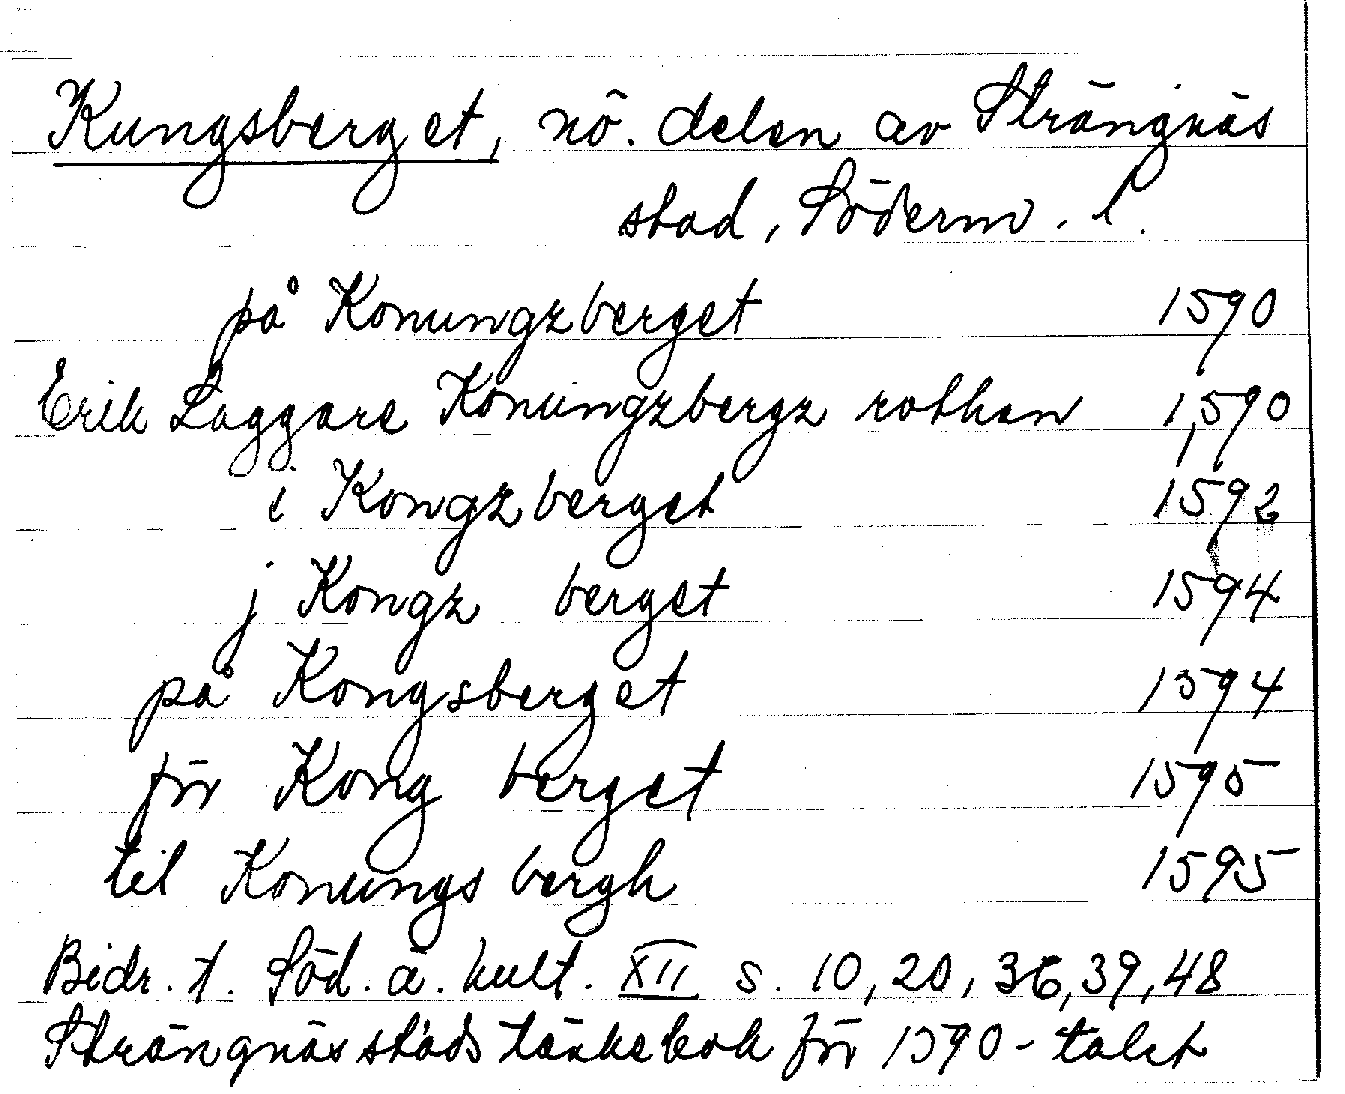 Kungsberget, nö. delen av Strängnäs
stad, Söderm. l.
på Konungzberget 1590
Erik Laggare Konungzbergz rothen 1590
i Kongzberget 1592
j Kongz berget 1594
på Kongsberget 1594
för Kong berget 1595
til Konungs bergh 1595
Bidr. t. Söd. ä. kult. XII s. 10, 20, 36, 39, 48
Strängnäs stads tänkebok för 1590-talet